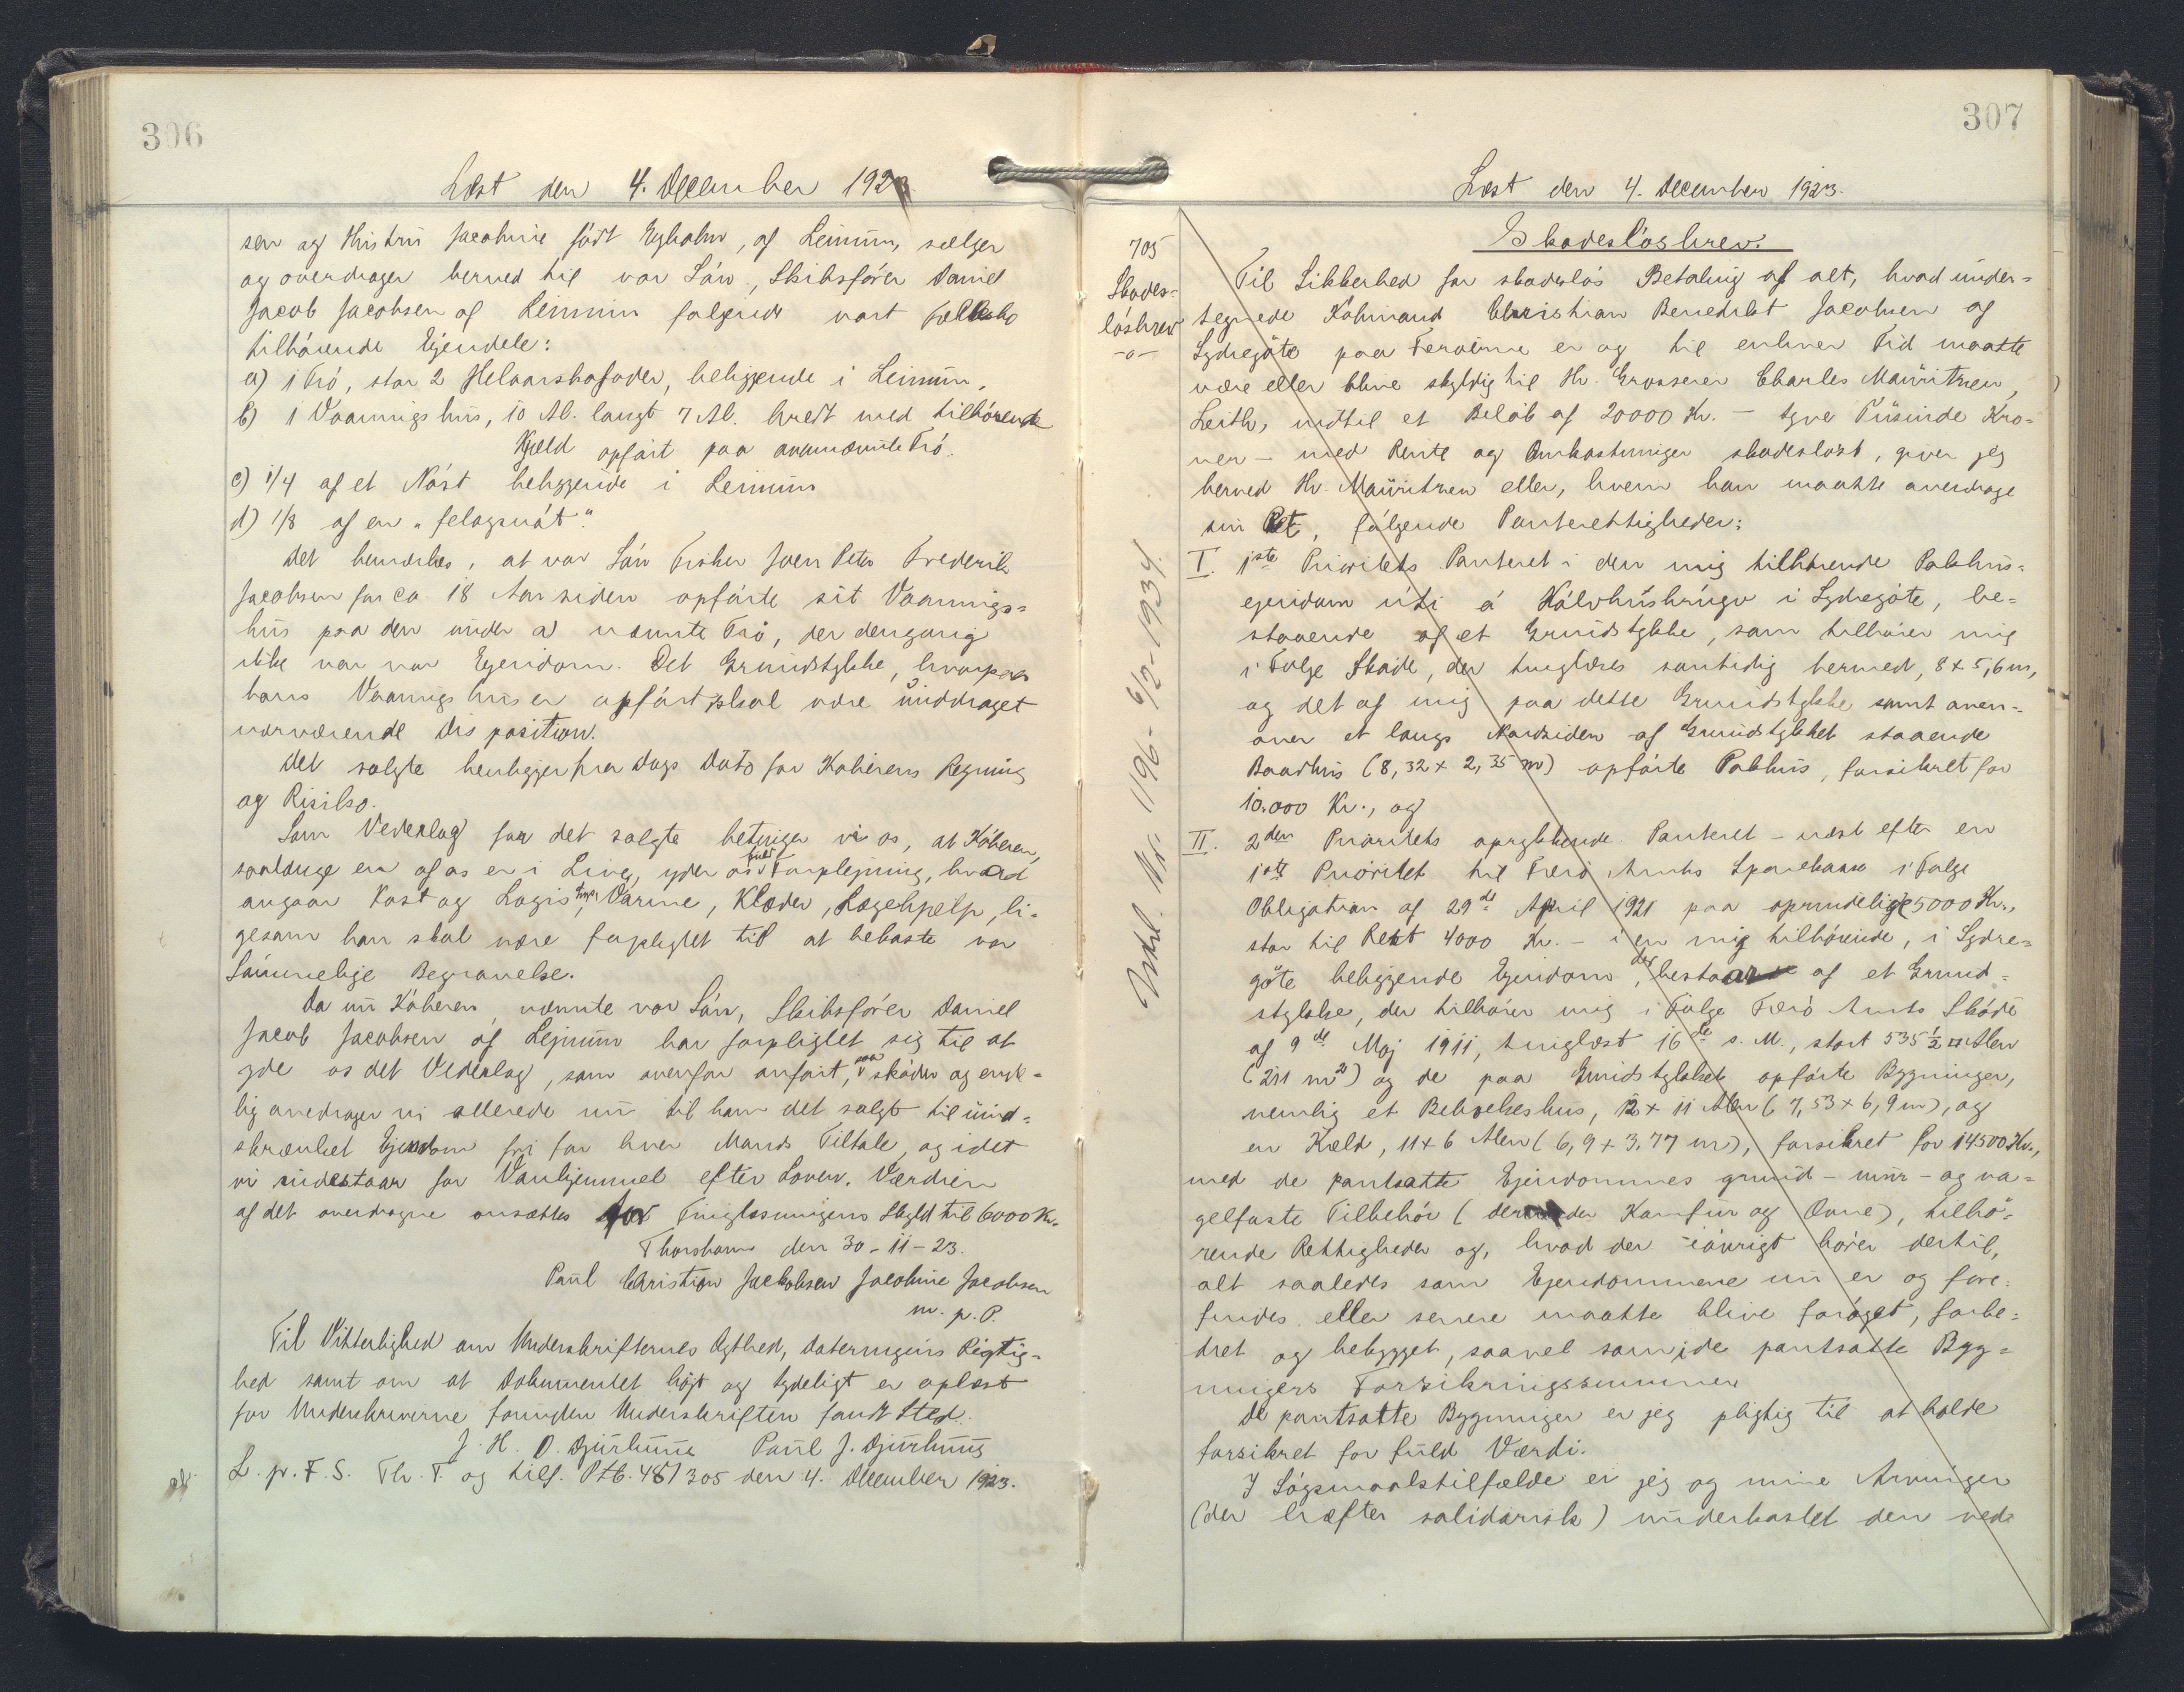 306
Læst den 4. December 1923.
sen og Hustru Jacobine født Egholm, af Leimum, sælger
og overdrager herved til vor Søn, Skibsfører Daniel
Jacob Jacobsen af Leimum følgende vort Fællesbo
tilhørende Ejendele:
a) 1 Trö, stor 2 Helaarskofoder, beliggende i Leimum,
b) 1 Vaaningshus, 10 Al. langt 7 Al. bredt med tilhørende
Kjæld opført paa ovennævnte Trö.
c) 1/4 af et Nøst beliggende i Leimum
d) 1/8 af en "felagsnót".
Det bemærkes, at vor Søn Fisker Joen Peter Frederik
Jacobsen for ca. 18 Aar siden opførte sit Vaanings=
hus paa den under a) nævnte Trö, der dengang
ikke var vor Ejendom. Det Grundstykke, hvorpaa
hans Vaaningshus er opført, skal være unddraget
nærværende Disposition.
Det solgte henligger fra Dags Dato for Køberens Regning
og Risiko.
Som Vederlag for det solgte betinger vi os, at Køberen,
saalænge en af os er i Live, yder os fuld Forplejning, hvad
angaar Kost og Logis, Lys, Varme, Klæder, Lægehjælp, li=
gesom han skal være forpligtet til at bekoste vor
sømmelige Begravelse.
Da nu Køberen, nævnte vor Søn, Skibsfører Daniel
Jacob Jacobsen af Lejmum har forpligtet sig til at
yde os det Vederlag, som ovenfor anført, saa skøder og ende=
lig overdrager vi allerede nu til ham det solgte til uind=
skrænket Ejendom fri for hver Mands Tiltale, og idet
vi indestaar for Vanhjemmel efter Loven. Værdien
af det overdragne ansættes for Tinglæsningens Skyld til 6000 Kr.
Thorshavn den 30-11-23.
Paul Christian Jackobsen Jacobine Jacobsen
m. p. P.
Til Vitterlighed om Underskrifternes Ægthed, Dateringens Rigtig=
hed samt om at Dokumentet højt og tydeligt er oplæst
for Underskriverne forinden Underskriften fandt Sted.
J. H. O. Djurhuus Paul J. Djurhuus
L. p. F. S. Th. T. og tilf. Ptb. 48/305 den 4. December 1923.
307
Læst den 4. December 1923.
705
Skades=
løsbrev
-o-
Udsl. Nr. 1196- 6/2-1934.
Skadesløsbrev.
Til Sikkerhed for skadesløs Betaling af alt, hvad under=
tegnede Købmand Christian Benedikt Jacobsen af
Sydregöte paa Færøerne er og til enhver Tid maatte
være eller blive skyldig til Hr. Grosserer Charles Mauritzen,
Leith, indtil et Beløb af 20000 Kr. - tyve Tusinde Kro=
ner - med Rente og Omkostninger skadesløst, giver jeg
herved Hr. Mauritzen eller, hvem han maatte overdrage
sin Ret, følgende Panterettigheder:
I. 1ste Prioritets Panteret i den mig tilhørende Pakhus=
ejendom úti á Kálvhúsbrúgv i Sydregöte, be=
staaende af et Grundstykke, som tilhører mig
i Følge Skøde, der tinglæses samtidig hermed, 8 x 5,6 m,
og det af mig paa dette Grundstykke samt oven=
over et langs Nordsiden af Grundstykket staaende
Baadhus (8,32 x 2,35 m) opførte Pakhus, forsikret for
10.000 Kr., og
II. 2den Prioritets oprykkende Panteret - næst efter en
1ste Prioritet til Færø Amts Sparekasse i Følge
Obligation af 29de April 1921 paa oprindelig 5000 Kr.,
stor til Rest 4000 Kr. - i en mig tilhørende, i Sydre=
göte beliggende Ejendom, der bestaar af et Grund=
stykke, der tilhører mig i Følge Færø Amts Skøde
af 9de Maj 1911, tinglæst 16de s. M., stort 535 1/2 □ Alen
(211 m²) og de paa Grundstykket opførte Bygninger,
nemlig et Beboelseshus, 12 x 11 Alen (7,53 x 6,9 m), og
en Kæld, 11 x 6 Alen (6,9 x 3,77 m), forsikret for 14500 Kr.,
med de pantsatte Ejendommes grund- mur- og na=
gelfaste Tilbehør (derunder Komfur og Ovne), tilhø=
rende Rettigheder og, hvad der iøvrigt hører dertil,
alt saaledes som Ejendommene nu er og fore=
findes eller senere maatte blive forøget, forbe=
dret og bebygget, saavel som i de pantsatte Byg=
ningers Forsikringssummer.
De pantsatte Bygninger er jeg pligtig til at holde
forsikret for fuld Værdi.
I Søgsmaalstilfælde er jeg og mine Arvinger
(der hæfter solidarisk) underkastet den ved